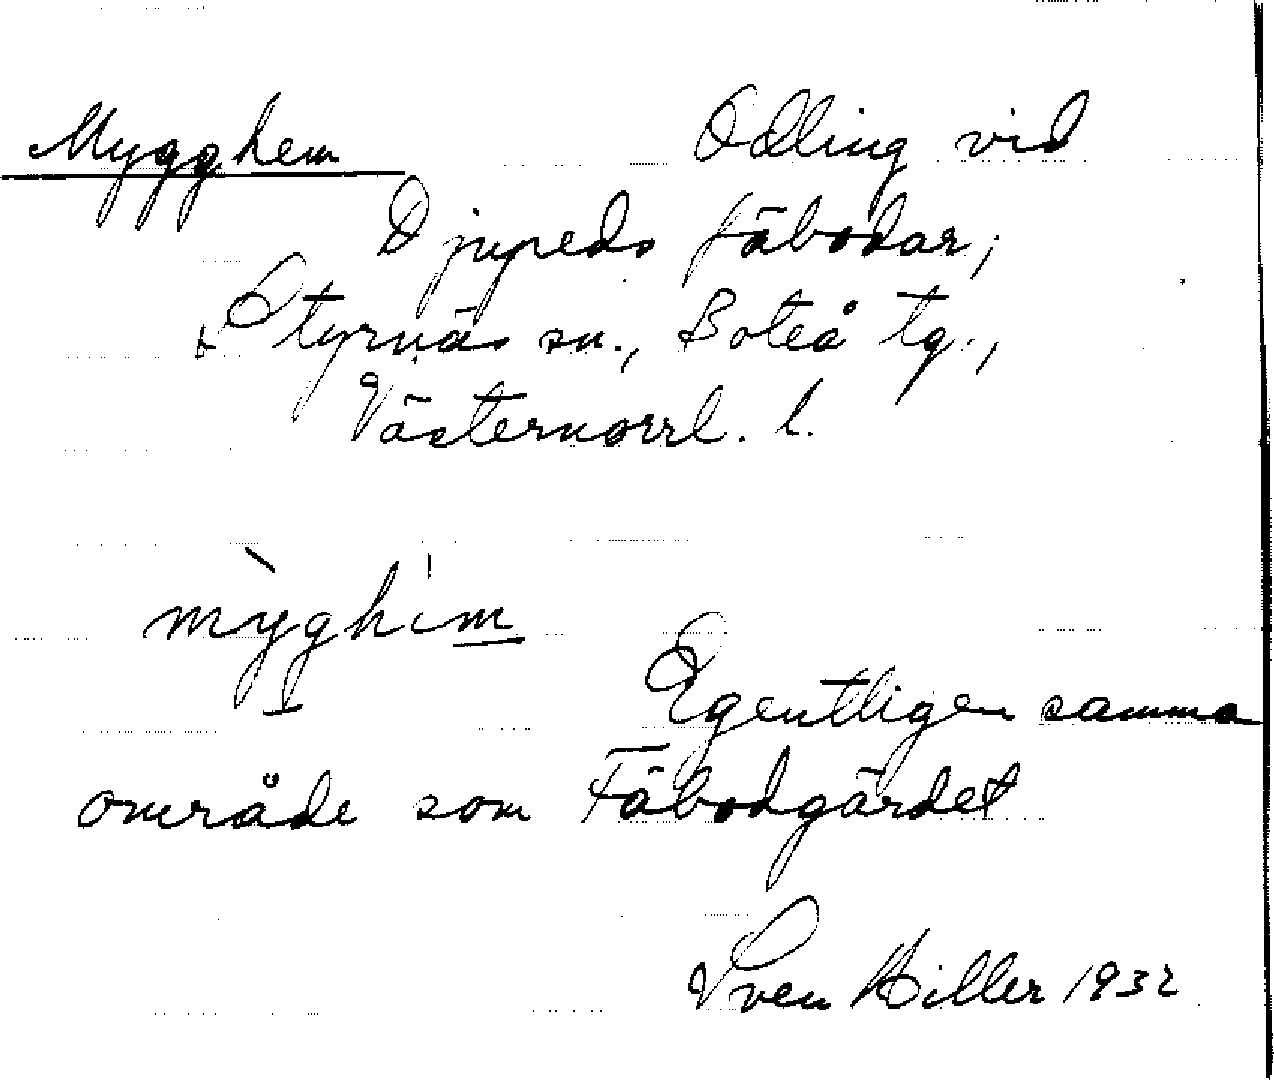 Mygghem Odling vid
Djupeds fäbodar,
Styrnäs sn., Boteå tg.,
Västernorrl. l.
mỳghim
Egentligen samma
område som Fäbodgärdet
Sven Hiller 1932